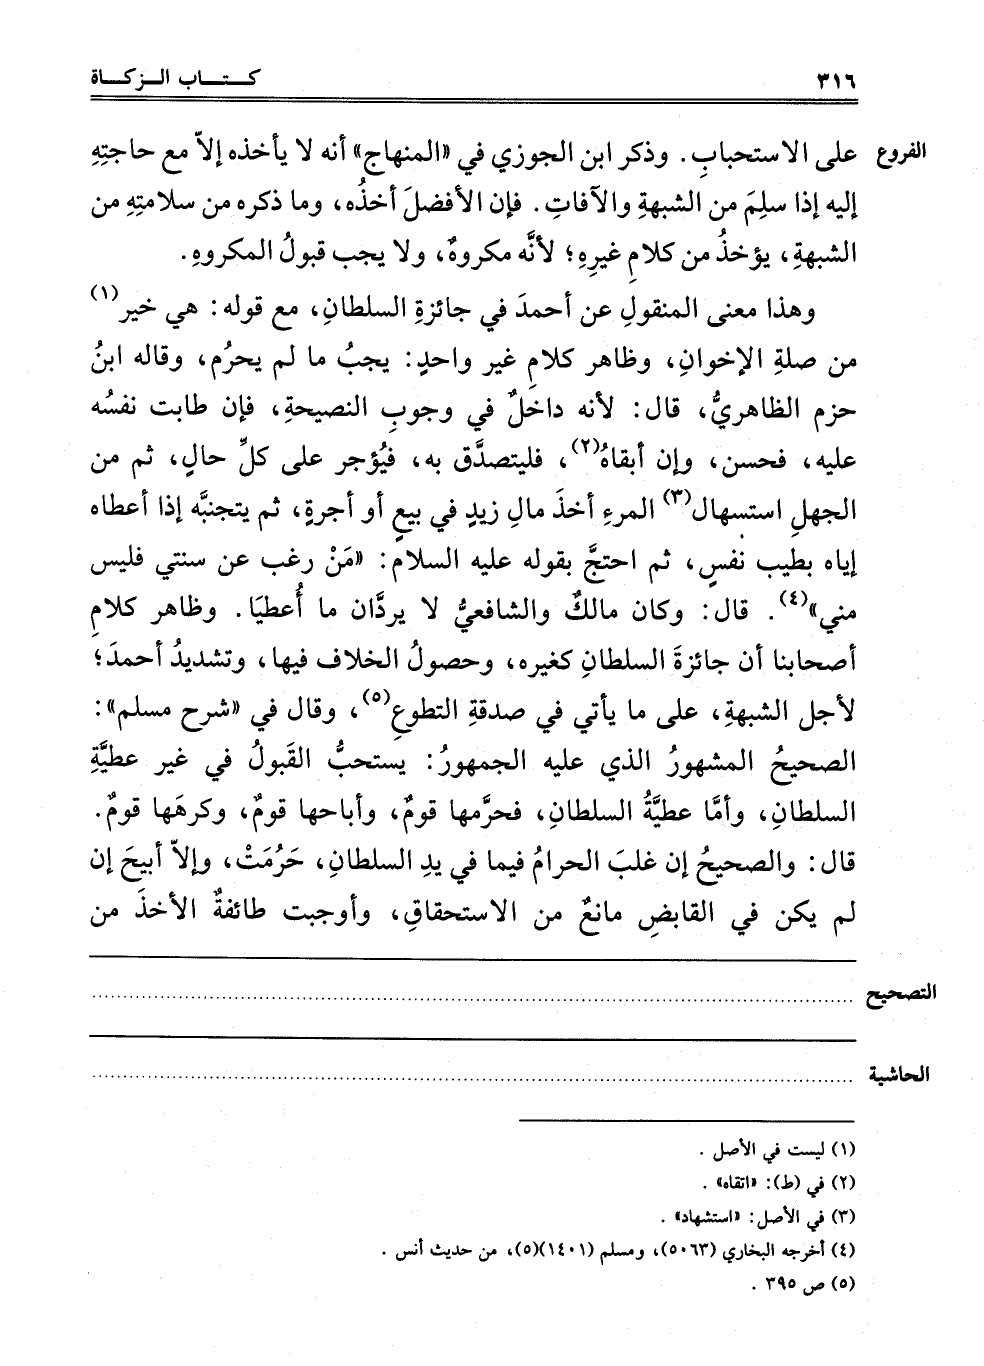 ٣١٦
كـتـاب الـزكـاة
الفروع
على الاستحبابِ. وذكر ابن الجوزي في «المنهاج» أنه لا يأخذه إلاّ مع حاجتِهِ
إليه إذا سلِمَ من الشبهةِ والآفاتِ. فإن الأفضلَ أخذُه، وما ذكره من سلامتِهِ من
الشبهةِ، يؤخذُ من كلامِ غيرِهِ؛ لأنَّه مكروهٌ، ولا يجب قبولُ المكروهِ.
وهذا معنى المنقولِ عن أحمدَ في جائزةِ السلطانِ، مع قوله: هي خير(١)
من صلةِ الإخوانِ، وظاهر كلامِ غير واحدٍ: يجبُ ما لم يحرُم، وقاله ابنُ
حزم الظاهريُّ، قال: لأنه داخلٌ في وجوبِ النصيحةِ، فإن طابت نفسُه
عليه، فحسن، وإن أبقاهُ(٢)، فليتصدَّق به، فيُؤجر على كلِّ حالٍ، ثم من
الجهلِ استسهال(٣) المرءِ أخذَ مالِ زيدٍ في بيعٍ أو أجرةٍ، ثم يتجنبَّه إذا أعطاه
إياه بطيب نفسٍ، ثم احتجَّ بقوله عليه السلام: «مَنْ رغب عن سنتي فليس
مني»(٤). قال: وكان مالكٌ والشافعيُّ لا يردَّان ما أُعطيَا. وظاهر كلامِ
أصحابنا أن جائزةَ السلطانِ كغيره، وحصولُ الخلاف فيها، وتشديدُ أحمدَ؛
لأجل الشبهةِ، على ما يأتي في صدقةِ التطوعِ(٥)، وقال في «شرح مسلم»:
الصحيحُ المشهورُ الذي عليه الجمهورُ: يستحبُّ القَبولُ في غير عطيَّةِ
السلطانِ، وأمَّا عطيَّةُ السلطانِ، فحرَّمها قومٌ، وأباحها قومٌ، وكرهَها قومٌ.
قال: والصحيحُ إن غلبَ الحرامُ فيما في يدِ السلطانِ، حَرُمَتْ، وإلاّ أبيحَ إن
لم يكن في القابضِ مانعٌ من الاستحقاقِ، وأوجبت طائفةٌ الأخذَ من
التصحيح
الحاشية
(١) ليست في الأصل .
(٢) في (ط): «اتقاه» .
(٣) في الأصل: «استشهاد» .
(٤) أخرجه البخاري (٥٠٦٣)، ومسلم (١٤٠١)(٥)، من حديث أنس .
(٥) ص ٣٩٥ .